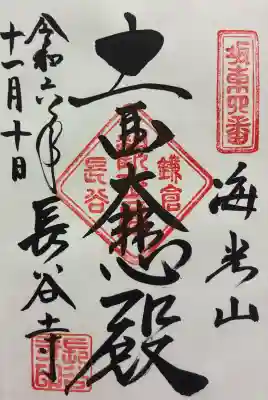 坂東四番
海光山
十一面大悲殿
鎌倉
長谷
長谷寺
令和六年
十一月十日